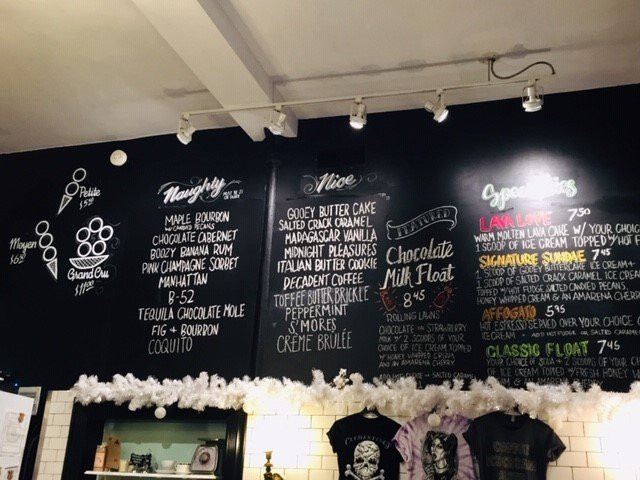 Petite
$5.20
Moyen
$6.50
Grand Cru
$11.00
Naughty
MUST BE 21
OR OLDER
MAPLE BOURBON
W/ CANDIED PECANS
CHOCOLATE CABERNET
BOOZY BANANA RUM
PINK CHAMPAGNE SORBET
MANHATTAN
B-52
TEQUILA CHOCOLATE MOLE
FIG + BOURBON
COQUITO
Nice
GOOEY BUTTER CAKE
SALTED CRACK CARAMEL
MADAGASCAR VANILLA
MIDNIGHT PLEASURES
ITALIAN BUTTER COOKIE
DECADENT COFFEE
TOFFEE BUTTER BRICKLE
PEPPERMINT
S'MORES
CRÈME BRULÉE
FEATURED
Chocolate
Milk Float
8.45
ROLLING LAWNS
CHOCOLATE OR STRAWBERRY
MILK W/ 2 SCOOPS OF YOUR
CHOICE OF ICE CREAM TOPPED
W/ HONEY WHIPPED CREAM
AND AN AMARENA CHERRY
Specialties
LAVA LOVE 7.50
WARM MOLTEN LAVA CAKE W/ YOUR CHOICE
1 SCOOP OF ICE CREAM TOPPED W/
SIGNATURE SUNDAE 7.45
1 SCOOP OF GOOEY BUTTERCAKE ICE CREAM +
1 SCOOP OF SALTED CRACK CARAMEL ICE CREAM
TOPPED W/ HOT FUDGE SALTED CANDIED PECANS,
HONEY WHIPPED CREAM & AN AMARENA CHERRY
AFFOGATO 5.95
HOT ESPRESSO SERVED OVER YOUR CHOICE
ICE CREAM ADD HOT FUDGE OR SALTED CARAMEL
CLASSIC FLOAT 7.45
YOUR CHOICE OF SODA + 2 SCOOPS OF YOUR
OF ICE CREAM TOPPED W/ FRESH HONEY
CLEMENTINE'S